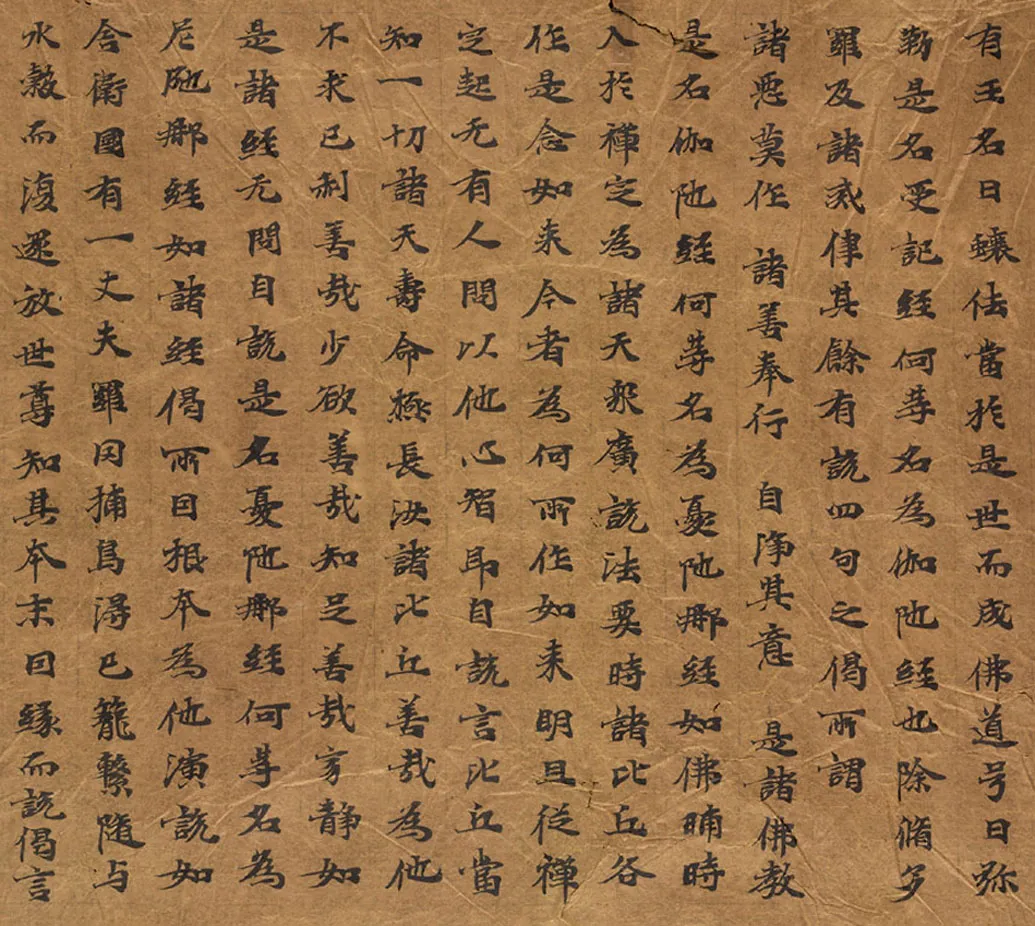 有王名曰蠰佉當於是世而成佛道号曰弥
勒是名受記経何等名為伽陁経也除脩多
羅及諸戒律其餘有說四句之偈所謂
諸惡莫作 諸善奉行 自浄其意 是諸佛教
是名伽陁経何等名為憂陁那経如佛晡時
入於禅定為諸天衆廣說法要時諸比丘各
作是念如来今者為何所作如来明旦従禅
定起无有人問以他心智即自說言比丘當
知一切諸天壽命極長汝諸比丘善哉為他
不求己利善哉少欲善哉知足善哉寂静如
是諸経无問自說是名憂陁那経何等名為
尼陁那経如諸経偈所因根本為他演說如
舎衛國有一丈夫羅囙捕鳥得已籠繫隨与
水穀而復還放世尊知其本末囙縁而說偈言